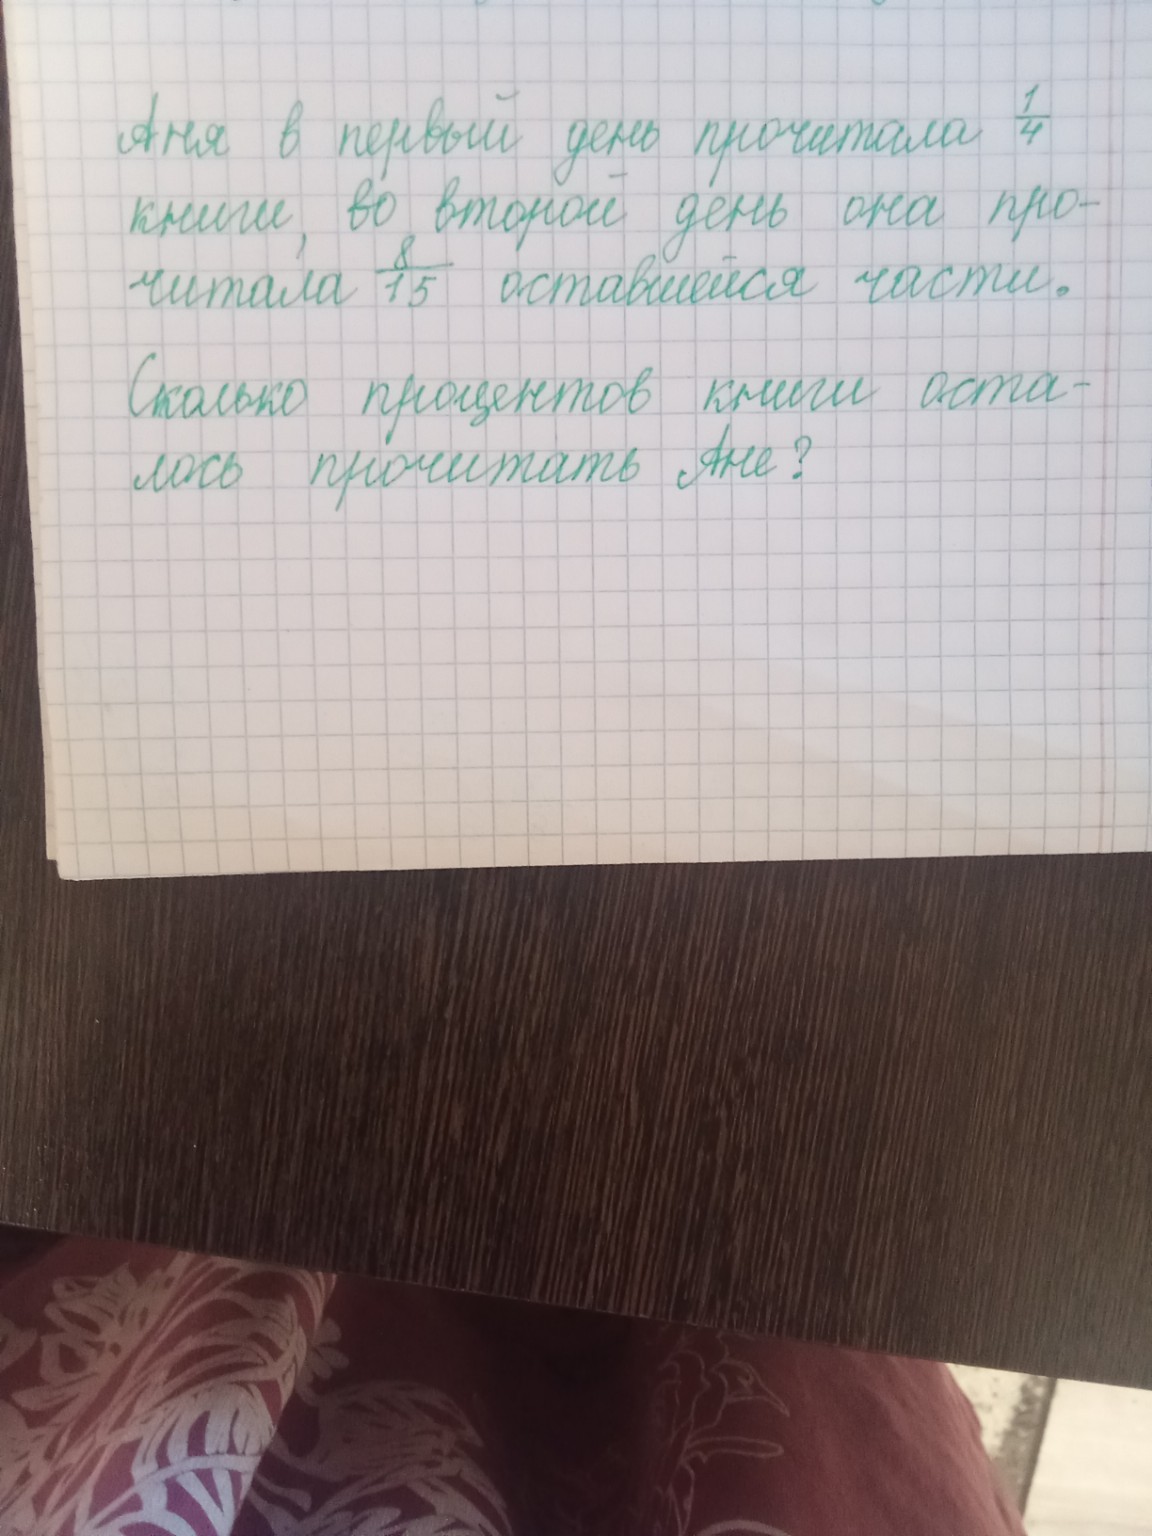 Аня в первый день прочитала 1/4
книги, во второй день она про-
читала 8/15 оставшейся части.
Сколько процентов книги оста-
лось прочитать Ане?